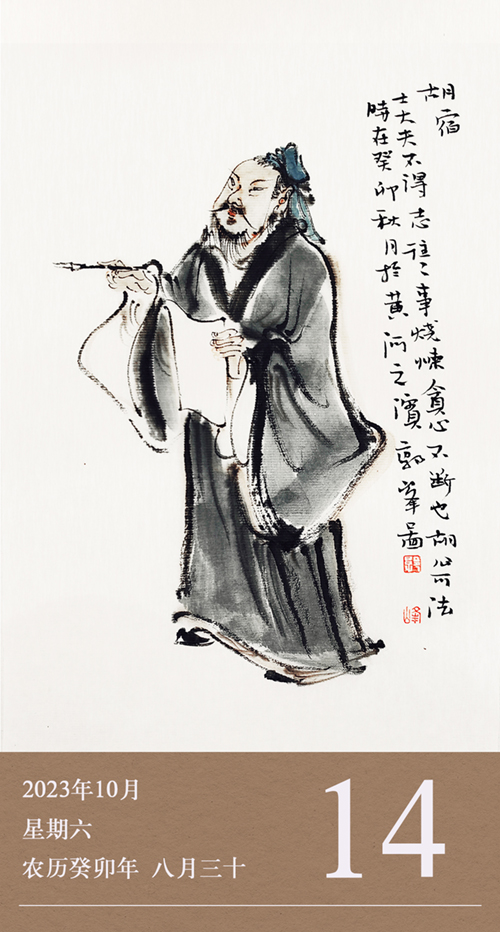 胡宿
士大夫不得志往〻事燒煉貪心不斷也胡公可法
時在癸卯秋月於黄河之濱郭峯啚
2023年10月
星期六
农历癸卯年 八月三十
14